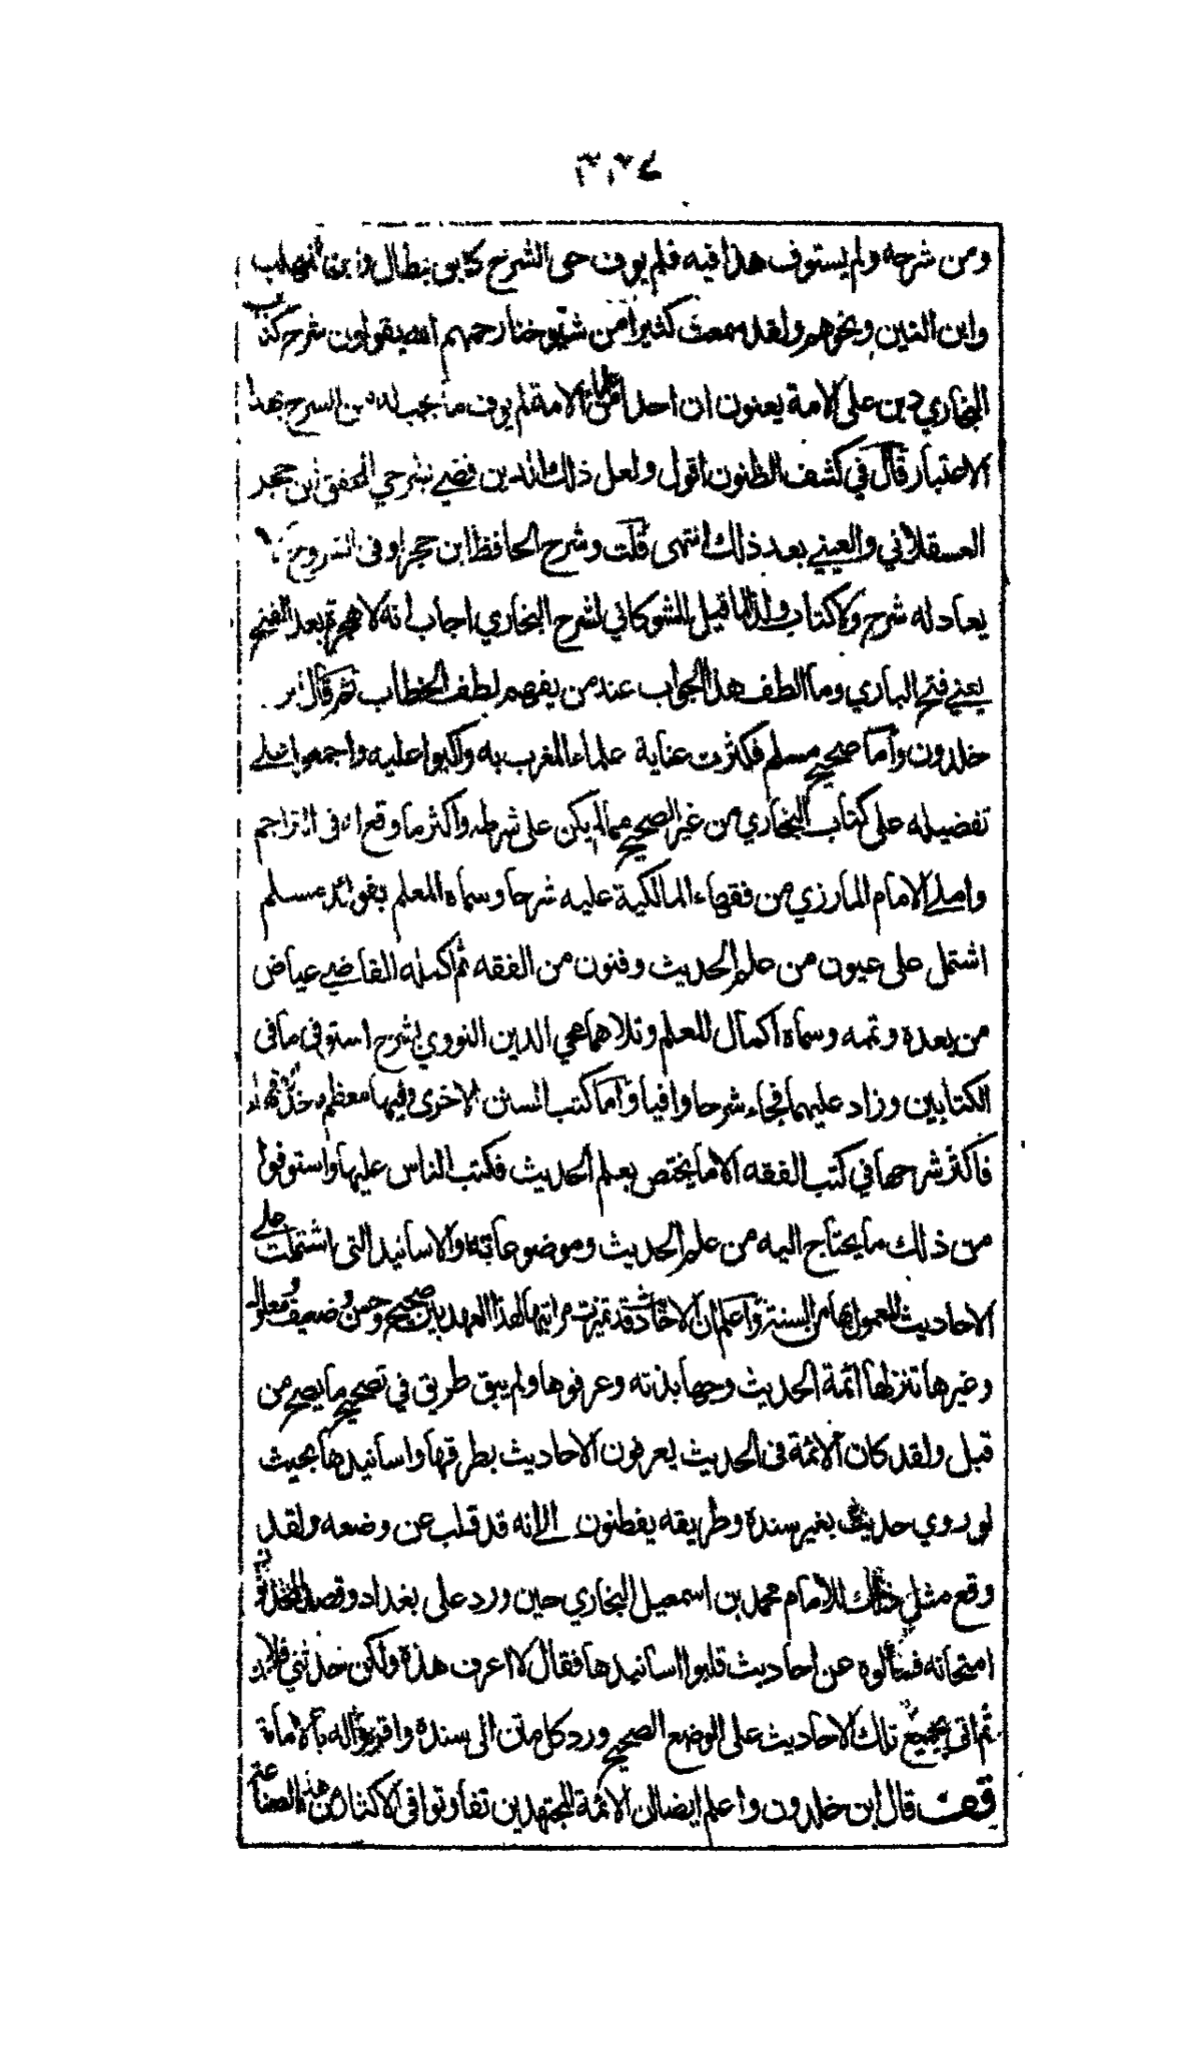 ومن شرحه ولم يستوف هذا فيه فلم يوف حق الشرح كابن بطال وابن المهلب
وابن التين ونحوهم ولقد سمعت كثيرا من شيوخنا رحمهم الله يقولون شرح كتاب
البخاري دين على الامة يعنون ان احدا من علماء الامة لم يوف ما يجب له من الشرح بهذا
الاعتبار قال في كشف الظنون اقول ولعل ذلك الدين قضي بشرحي المحقق ابن حجر
العسقلاني والعيني بعد ذلك انتهى قلت وشرح الحافظ ابن حجر اوفى الشروح لا
يعادله شرح ولا كتاب ولذا لما قيل للشوكاني لشرح البخاري اجاب انه لا هجرة بعد الفتح
يعني فتح الباري وما الطف هذا الجواب عند من يفهم لطف الخطاب ثم قال ابن
خلدون واما صحيح مسلم فكثرت عناية علماء المغرب به واكبوا عليه واجمعوا على
تفضيله على كتاب البخاري من غير الصحيح مما لم يكن على شرطه واكثر ما وقع له في التراجم
واملى الامام المارزي من فقهاء المالكية عليه شرحا وسماه المعلم بفوائد مسلم
اشتمل على عيون من علم الحديث وفنون من الفقه ثم اكمله القاضي عياض
من بعده وتممه وسماه اكمال المعلم وتلاهما محي الدين النووي بشرح استوفى ما في
الكتابين وزاد عليهما فجاء شرحا وافيا واما كتب السنن الاخرى وفيها معظم ماخذ الفقهاء
فاكثر شرحها في كتب الفقه الا ما يختص بعلم الحديث فكتب الناس عليها واستوفوا
من ذلك ما يحتاج اليه من علم الحديث وموضوعاته والاسانيد التي اشتملت على
الاحاديث المعمول بها من السنة واعلم ان الاحاديث قد تميزت مراتبها لهذا العهد بين صحيح وحسن وضعيف ومعلول
وغيرها تنزلها ائمة الحديث وجهابذته وعرفوها ولم يبق طريق في تصحيح ما يصح من
قبل ولقد كان الائمة في الحديث يعرفون الاحاديث بطرقها واسانيدها بحيث
لو روي حديث بغير سنده وطريقه يفطنون الى انه قد قلب عن وضعه ولقد
وقع مثل ذلك للامام محمد بن اسمعيل البخاري حين ورد على بغداد وقصد المحدثون
امتحانه فسألوه عن احاديث قلبوا اسانيدها فقال لا اعرف هذه ولكن حدثني فلان
ثم اتى بجميع تلك الاحاديث على الوضع الصحيح ورد كل متن الى سنده واقروا له بالامامة
قف قال ابن خلدون واعلم ايضا ان الائمة المجتهدين تفاوتوا في الاكثار من هذه الصناعة